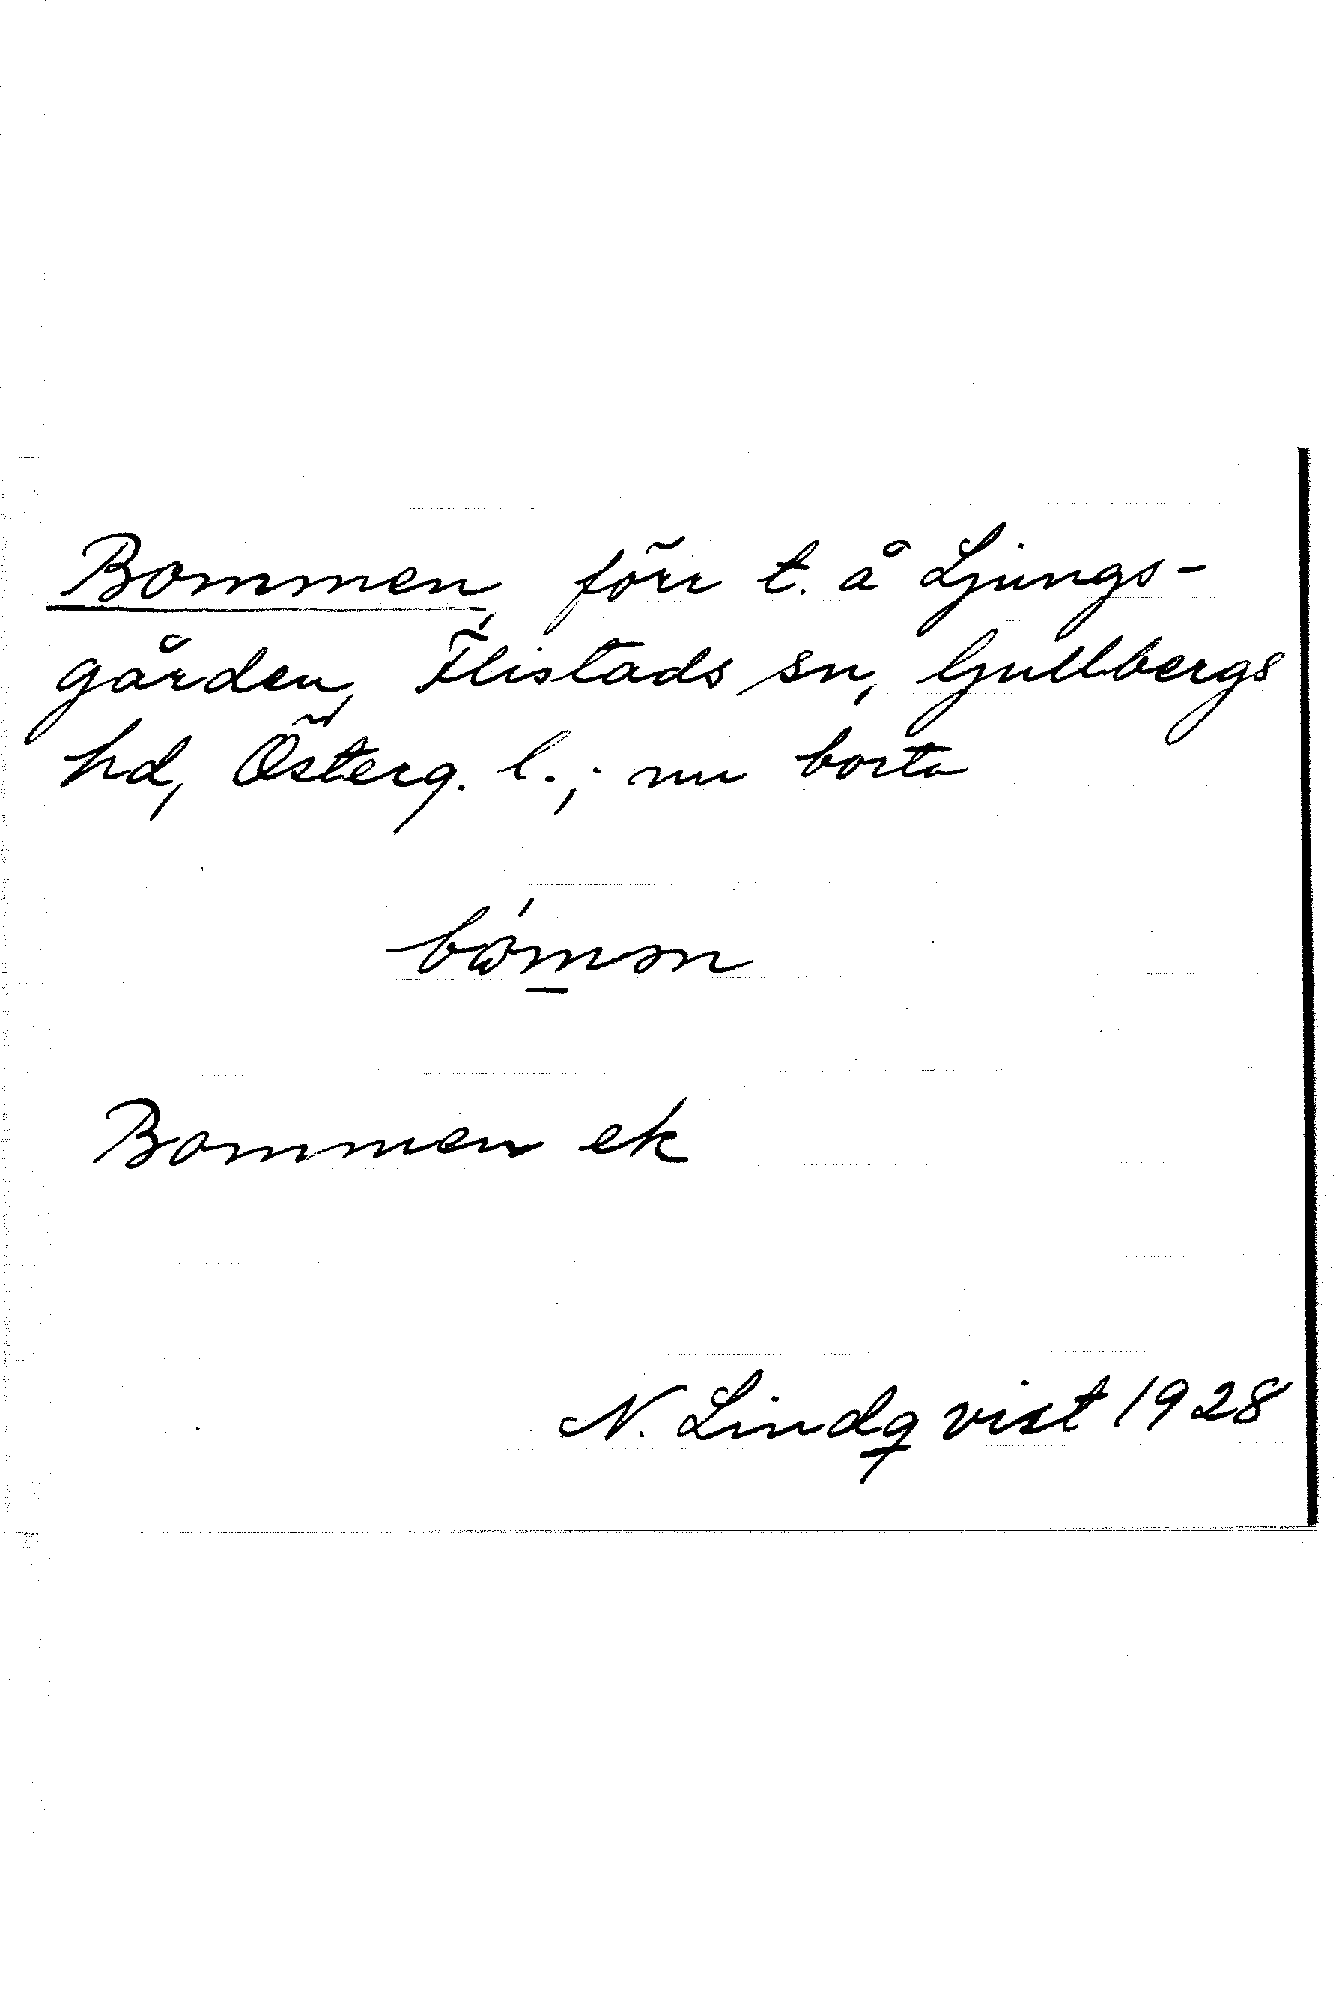 Bommen, förr t. å Ljungs-
gården, Flistads sn, Gullbergs
hd, Österg. l.; nu borta
bɷ́m̲ən
Bommen ek
N. Lindqvist 1928